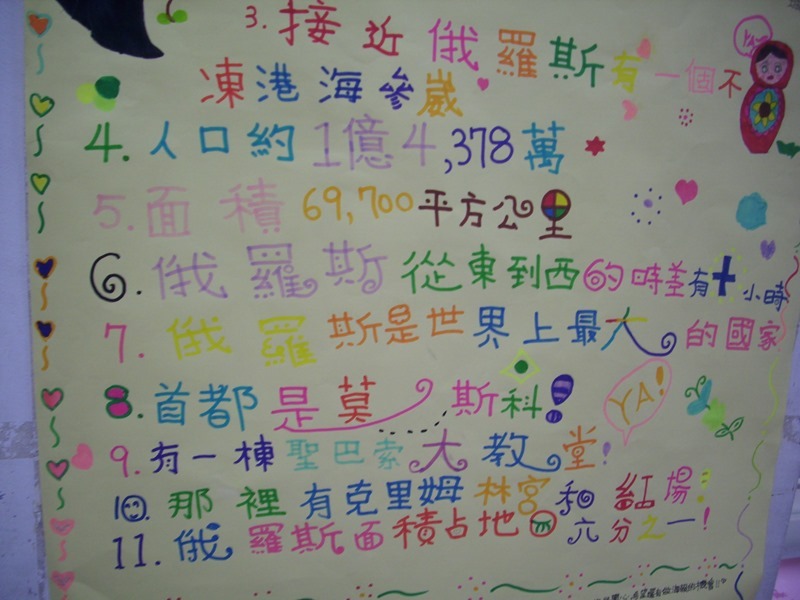 3. 接近俄羅斯有一個不
凍港海參崴
4. 人口約1億4,378萬
5. 面積69,700平方公里
6. 俄羅斯從東到西的時差有十小時
7. 俄羅斯是世界上最大的國家
8. 首都是莫斯科!
YA!
9. 有一棟聖巴索大教堂!
10. 那裡有克里姆林宮和紅場!
11. 俄羅斯面積占地曰六分之一!